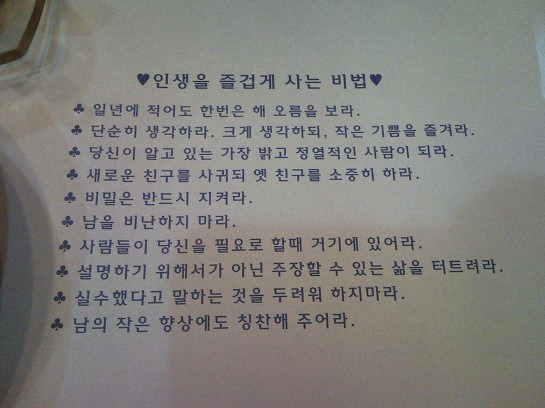 ♥인생을 즐겁게 사는 비법♥
♣ 일년에 적어도 한번은 해 오름을 보라.
♣ 단순히 생각하라. 크게 생각하되, 작은 기쁨을 즐겨라.
♣ 당신이 알고 있는 가장 밝고 정열적인 사람이 되라.
♣ 새로운 친구를 사귀되 옛 친구를 소중히 하라.
♣ 비밀은 반드시 지켜라.
♣ 남을 비난하지 마라.
♣ 사람들이 당신을 필요로 할때 거기에 있어라.
♣ 설명하기 위해서가 아닌 주장할 수 있는 삶을 터트려라.
♣ 실수했다고 말하는 것을 두려워 하지마라.
♣ 남의 작은 향상에도 칭찬해 주어라.